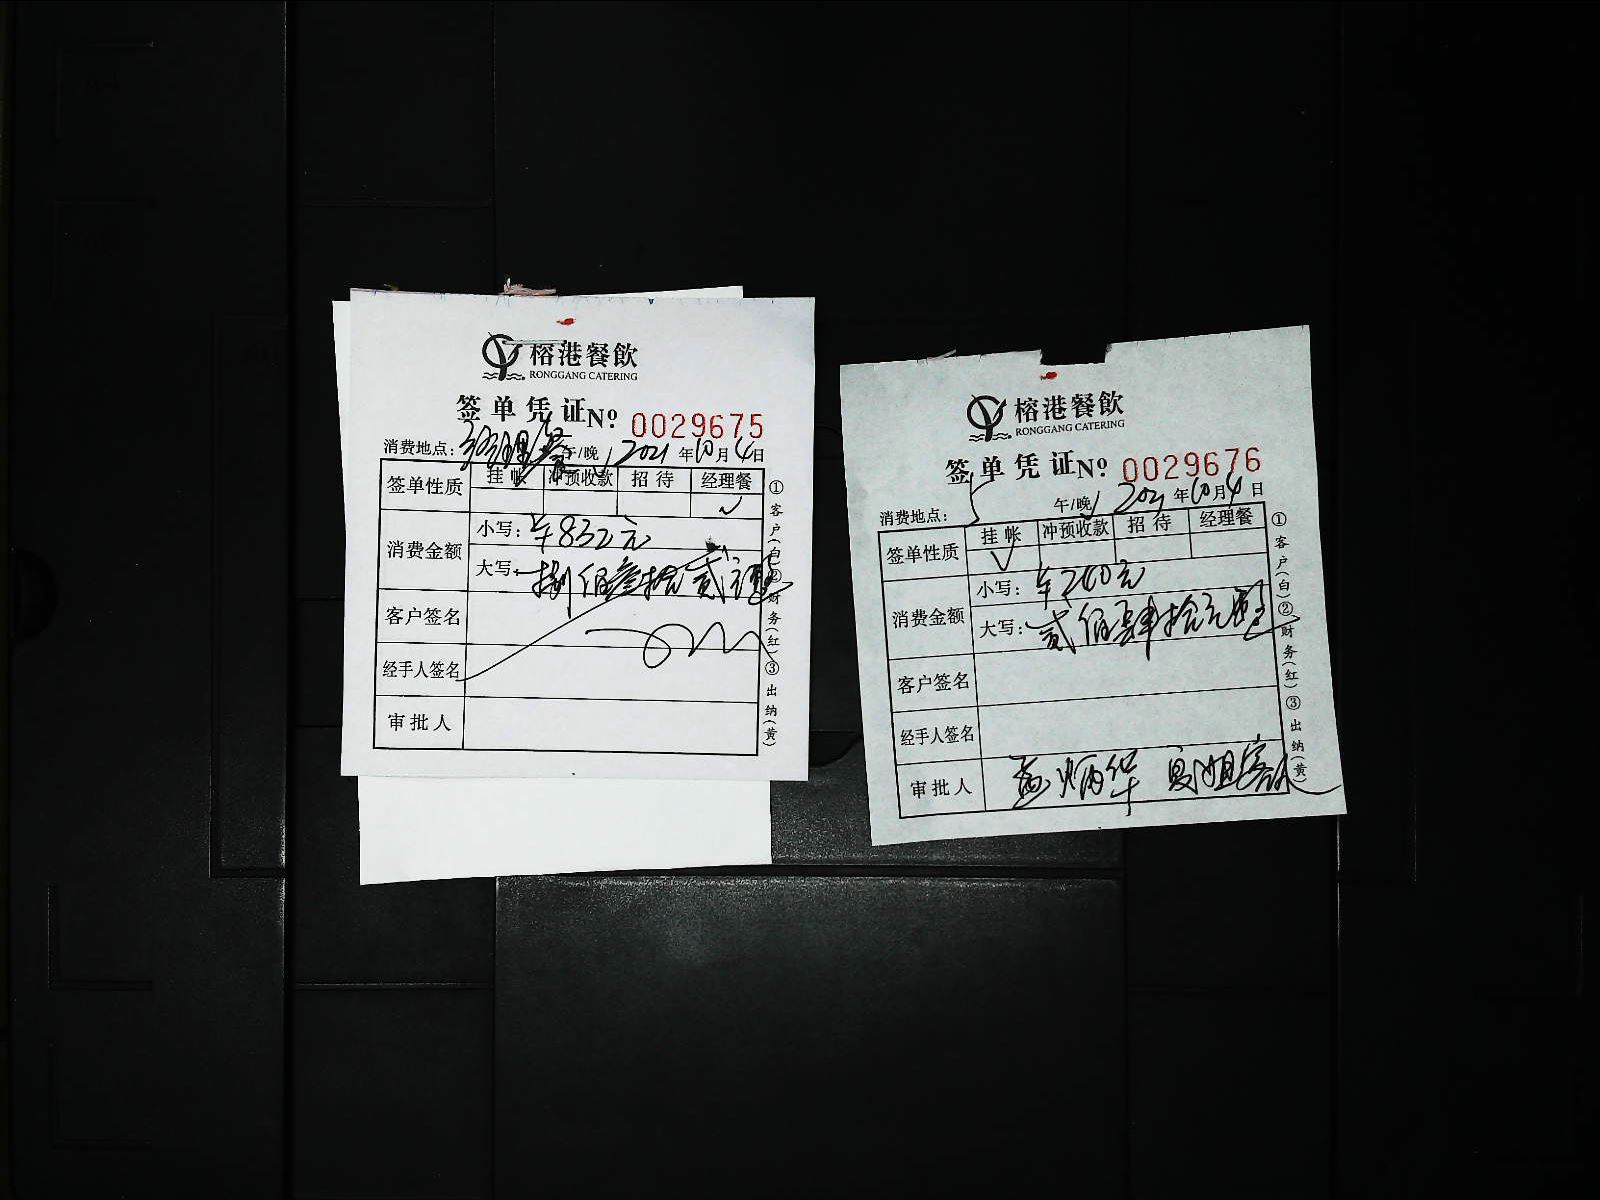 榕港餐飲
RONGGANG CATERING
签单凭证№ 0029675
消费地点：经理餐 午/晚 2021年10月4日
签单性质 挂帐 冲预收款 招待 经理餐
✓
消费金额
小写：¥832元
大写：捌佰叁拾贰元整
客户签名
经手人签名
审批人
①客户(白)②财务(红)③出纳(黄)
榕港餐飲
RONGGANG CATERING
签单凭证№ 0029676
消费地点： 5 午/晚 2021年10月4日
签单性质 挂帐 冲预收款 招待 经理餐
✓
消费金额
小写：¥240元
大写：贰佰肆拾元整
客户签名
经手人签名
审批人 炳华
①客户(白)②财务(红)③出纳(黄)